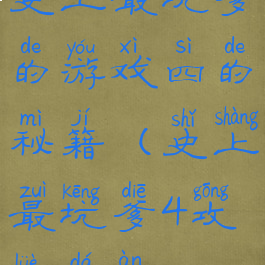 de yóu xì sì de
的游戏四的
mì jí shǐ shàng
秘籍（史上
zuì kēng diē gōng
最坑爹4攻
lüè dá àn